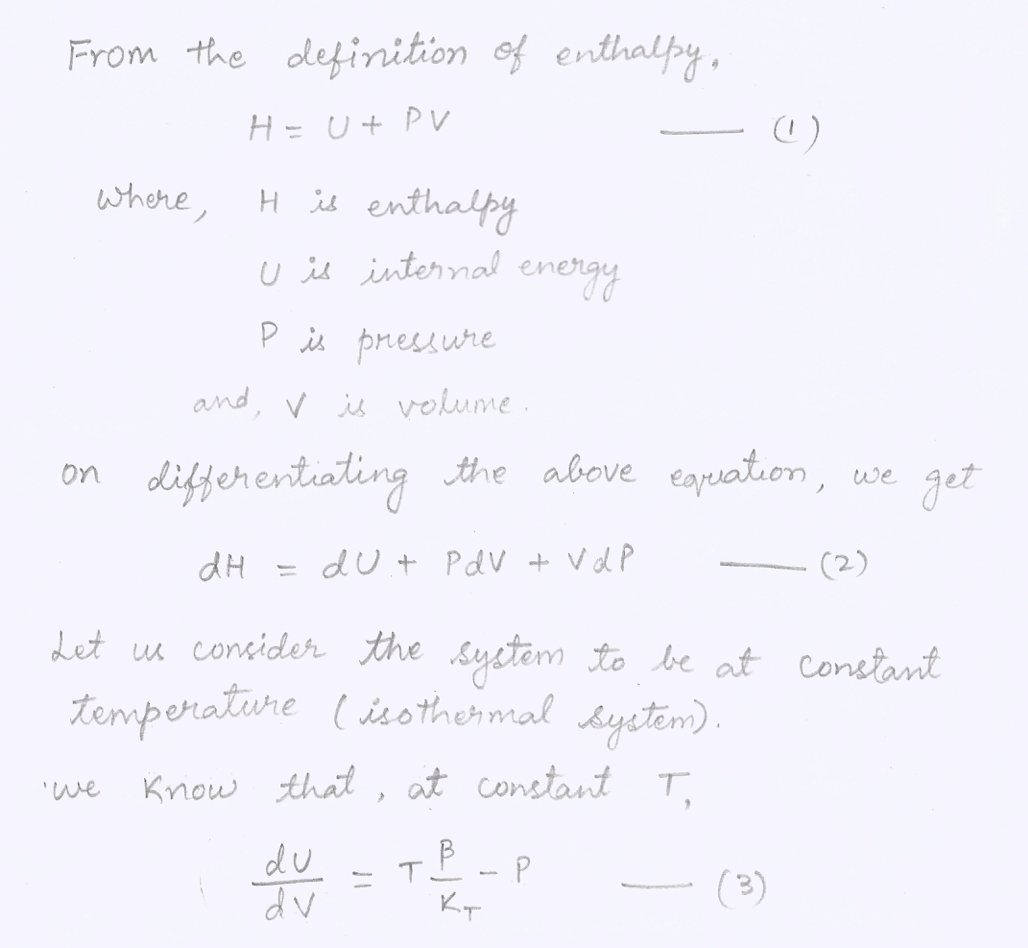 From the definition of enthalpy,
H = U + PV —— (1)
where, H is enthalpy
U is internal energy
P is pressure
and, V is volume.
on differentiating the above equation, we get
dH = dU + PdV + VdP —— (2)
Let us consider the system to be at constant
temperature (isothermal system).
we know that, at constant T,
dU/dV = T β/K_T - P —— (3)